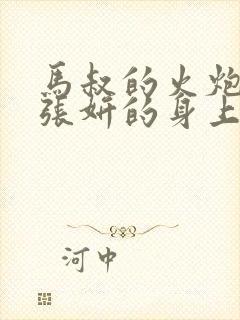 馬叔的火炮
張妍的身上
河中